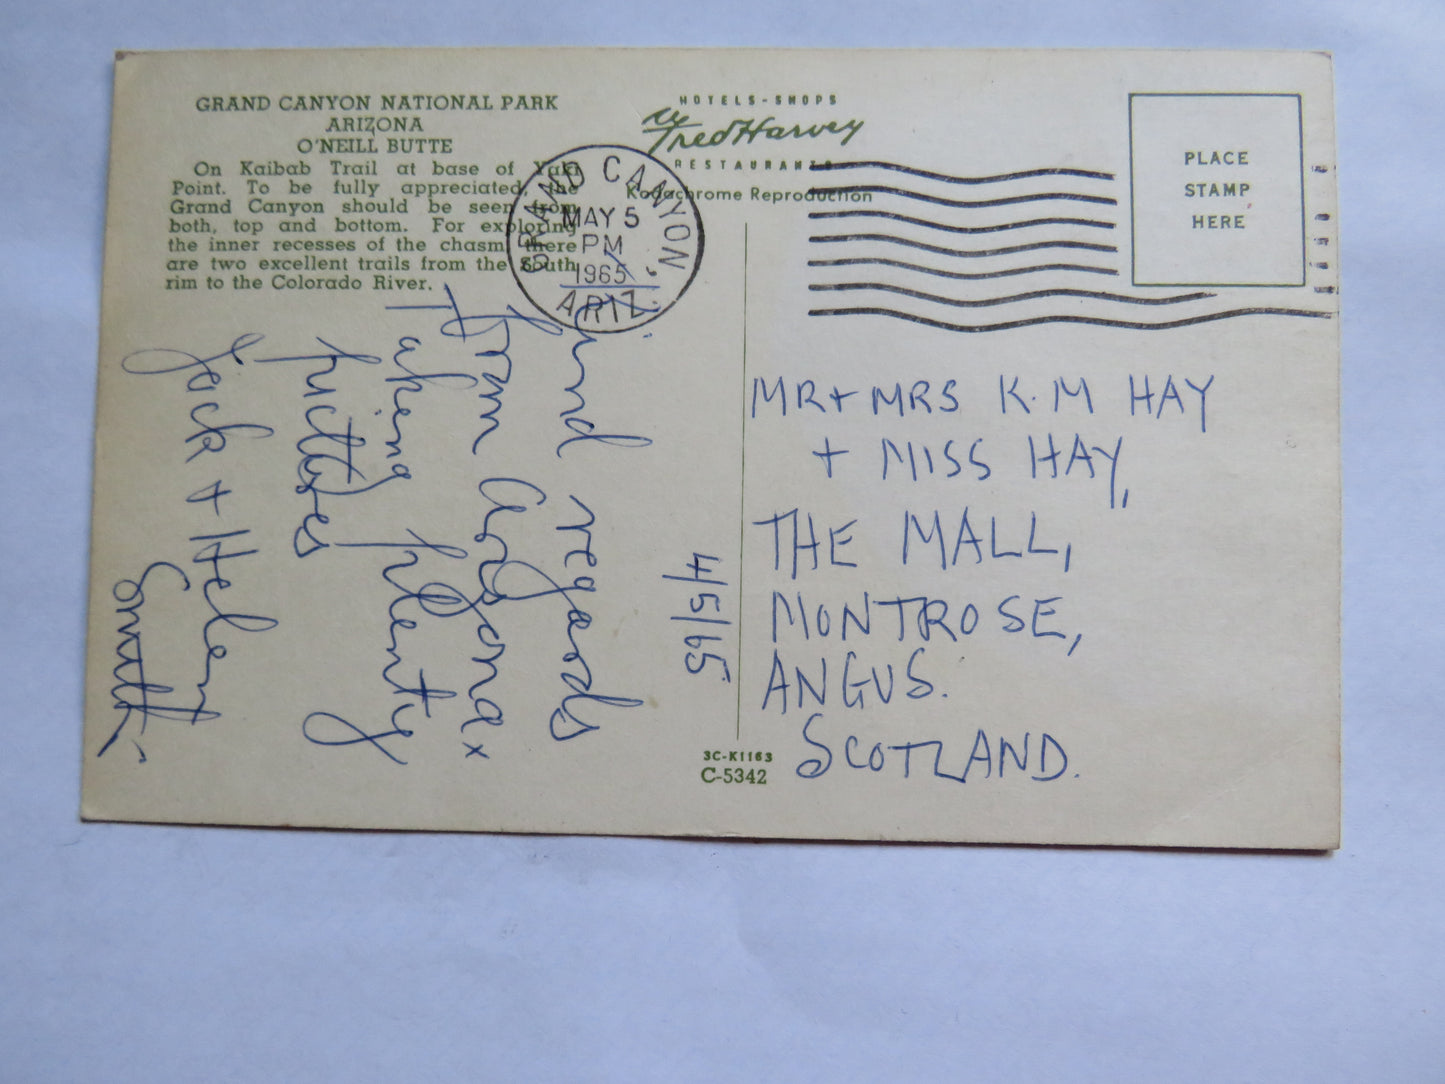 GRAND CANYON NATIONAL PARK
ARIZONA
O'NEILL BUTTE
On Kaibab Trail at base of Yaki
Point. To be fully appreciated, the
Grand Canyon should be seen from
both, top and bottom. For exploring
the inner recesses of the chasm, there
are two excellent trails from the South
rim to the Colorado River.
HOTELS-SHOPS
Fred Harvey
RESTAURANTS
Kodachrome Reproduction
GRAND CANYON,
MAY 5
PM
1965
ARIZ.
PLACE
STAMP
HERE
4/5/65
Kind regards
from Arizona x
Taking plenty
pictures
Jack + Helen
Smith.
MR + MRS K. M HAY
+ MISS HAY,
THE MALL,
MONTROSE,
ANGUS.
SCOTLAND.
3C-K1163
C-5342